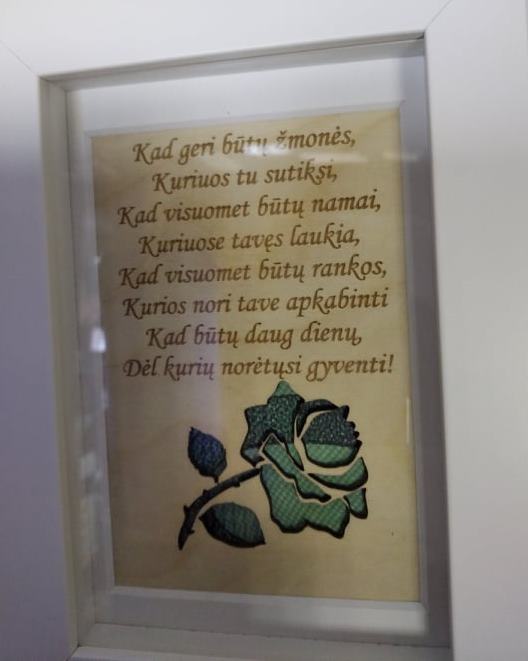 Kad geri būtų žmonės,
Kuriuos tu sutiksi,
Kad visuomet būtų namai,
Kuriuose tavęs laukia,
Kad visuomet būtų rankos,
Kurios nori tave apkabinti
Kad būtų daug dienų,
Dėl kurių norėtųsi gyventi!